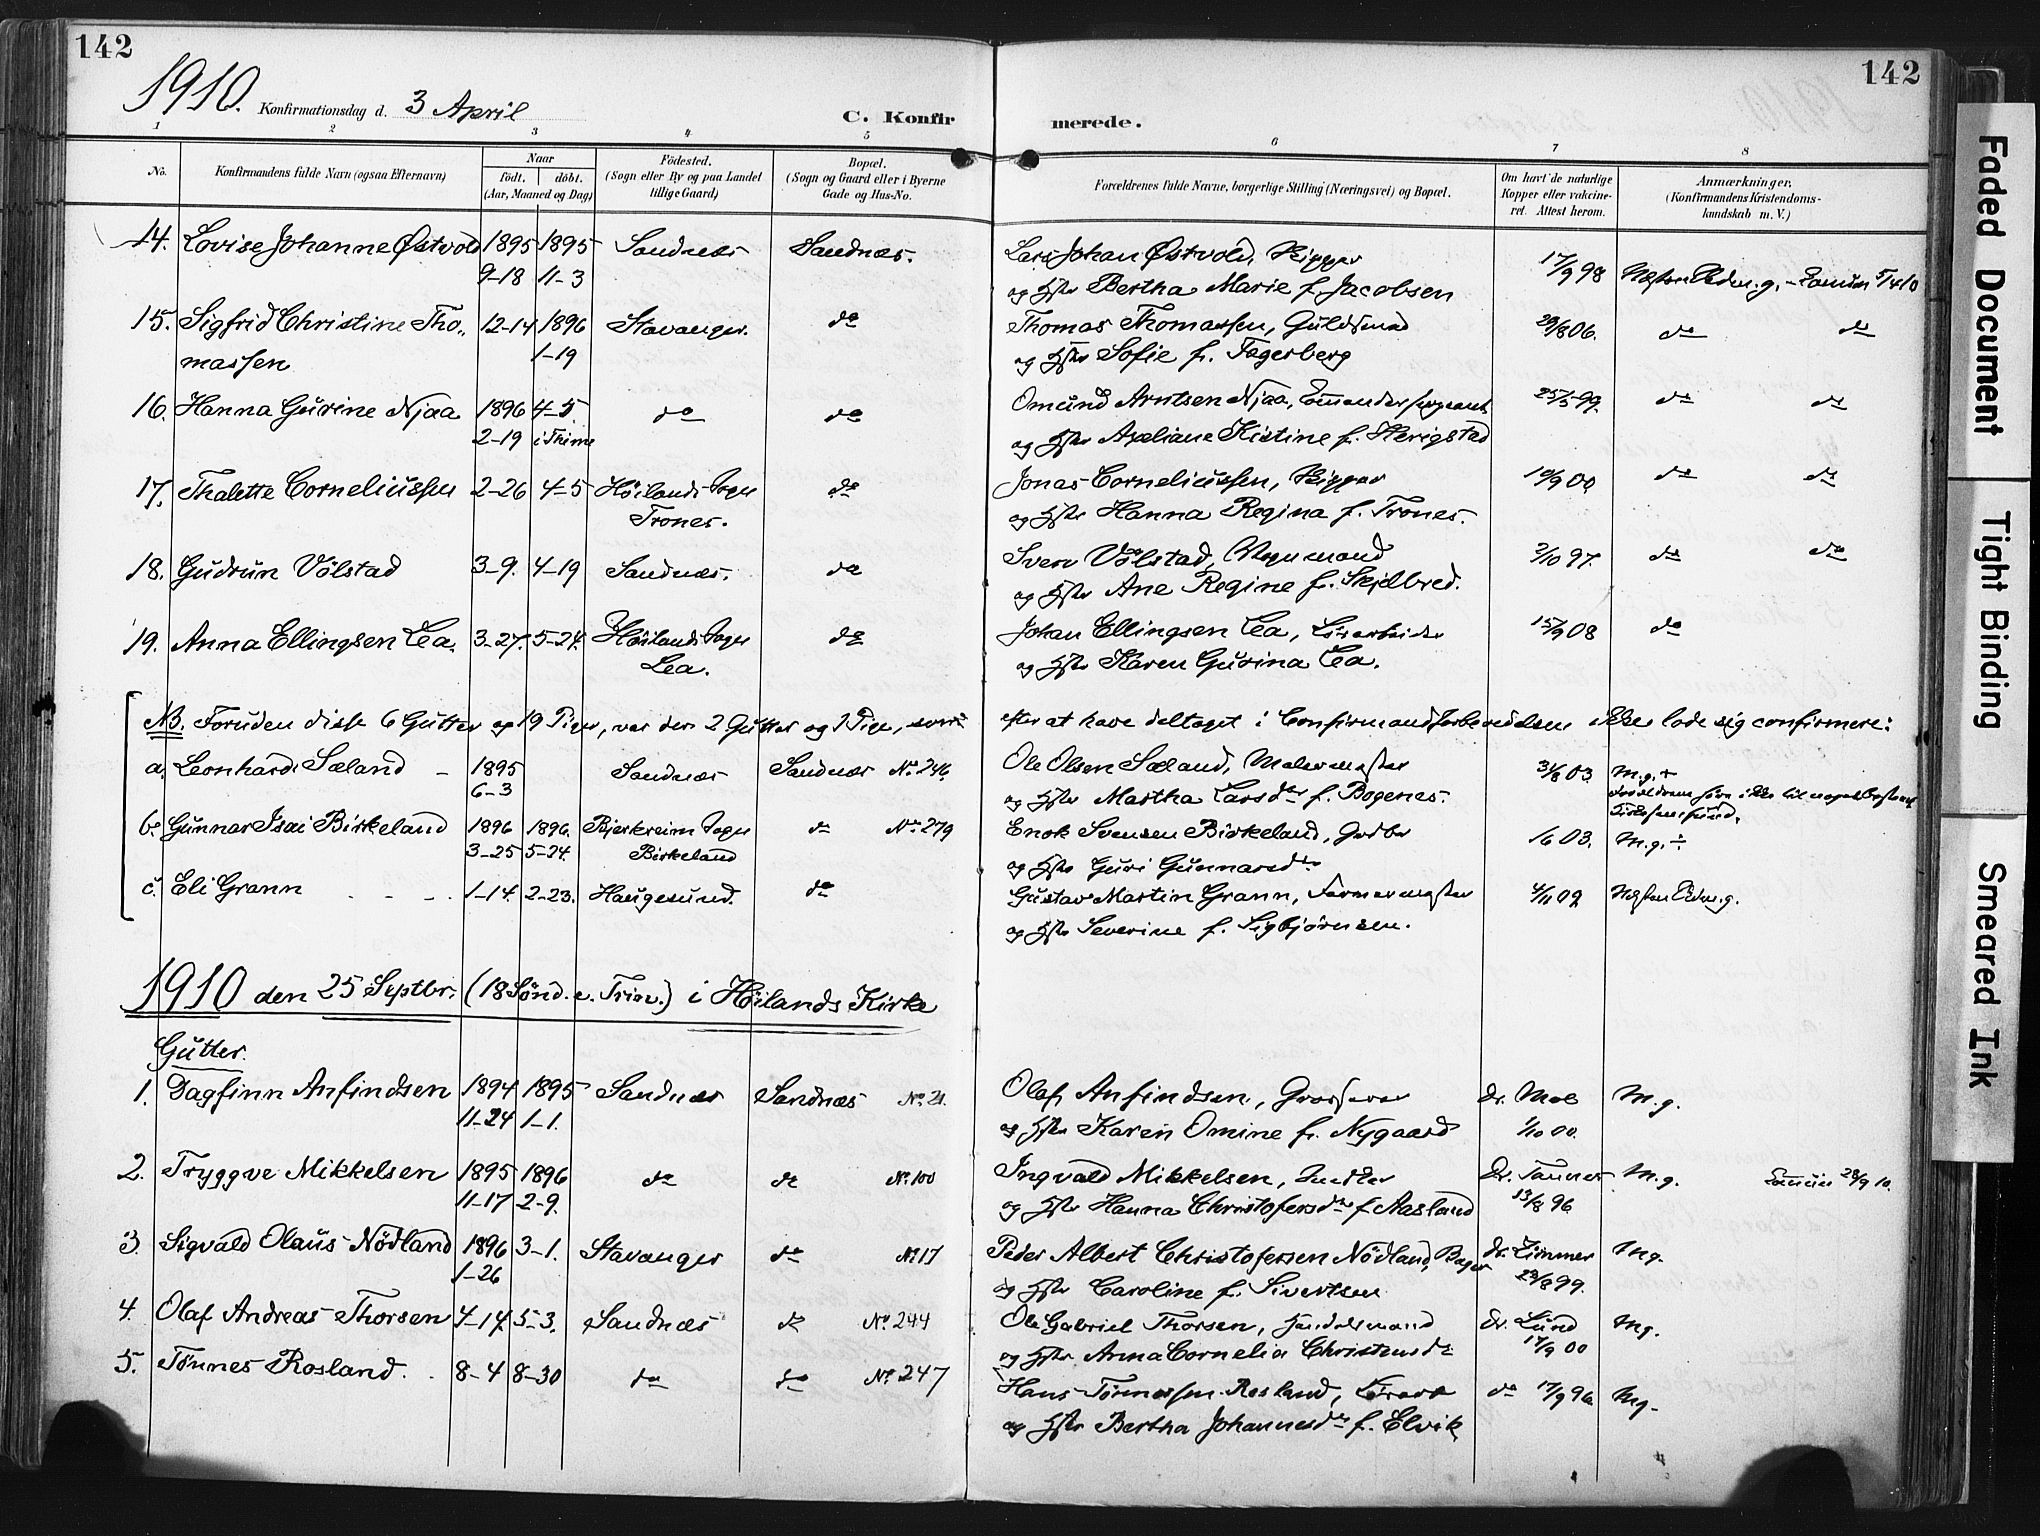 142
142
1910. Konfirmationsdag d. 3 April
C. Konfirmerede.
1 2 3 4 5 6 7 8
No.
Konfirmandens fulde Navn (ogsaa Efternavn)
Naar
födt. döbt.
(Aar, Maaned og Dag)
Födested.
(Sogn eller By og paa Landet
tillige Gaard)
Bopæl.
(Sogn og Gaard eller i Byerne
Gade og Hus-No.
Forældrenes fulde Navne, borgerlige Stilling (Næringsvei) og Bopæl.
Om havt de naturlige
Kopper eller vakcine-
ret. Attest herom.
Anmærkninger.
(Konfirmandens Kristendoms-
kundskab m. V.)
14. Lovise Johanne Østvold 1895 1895 Sandnæs Sandnæs. Lars Johan Østvold, Skipper 17/9 98
9-18 11-3 og Hstr Bertha Marie f. Jacobsen
15. Sigfrid Christine Tho- 12-14 1896 Stavanger. do Thomas Thomassen, Guldsmed 06. do do
massen 1-19 og Hstr Sofie f. Fagerberg
16. Hanna Gurine Njaa 1896 4-5 do do Omund Arntsen Njaa, 99. do do
2-19 i Thime og Hstr Axeliane Kistine f. Herigstad
17. Thalette Corneliussen 2-26 4-5 Höilands Sogn do Jonas Corneliussen, Skipper 00. do do
Trones. og Hstr Hanna Regina f. Trones.
18. Gudrun Völstad 3-9. 4-19 Sandnæs. do Sven Völstad, Vognmand 2/10 97. do do
og Hstr Ane Regine f. Skjelbred.
19. Anna Ellingsen Lea. 3-27. 5-24. Höilands Sogn do Johan Ellingsen Lea, 15/9 08 do
Lea. og Hstr Karen Gurina Lea.
NB. Foruden disse 6 Gutter og 19 Piger, var der 2 Gutter og 1 Pige, som efter at have deltaget i Confirmandforberedelsen ikke lode sig confirmere:
a. Leonhard Sæland - 1895 Sandnæs Sandnæs No. 246. Ole Olsen Sæland, Malermester 31/8 03. M.g. +
6-3 og Hstr Martha Larsdtr f. Bogenes.
b. Gunnar Isai Birkeland 1896 1896. Bjerkreim Sogn do No. 279 Enok Svensen Birkeland, Gardbr 16 03. M.g. ÷
3-25 5-24. Birkeland og Hstr Guri Gunnarsdtr
c. Eli Grann 1-14. 2-23. Haugesund. do Gustav Martin Grann, Farvermester 4/11 02 Næsten Udm.g.
og Hstr Severine f. Sigbjørnsen.
1910 den 25 Septbr. (18 Sönd. e. Trin.) i Höilands Kirke
Gutter.
1. Dagfinn Anfindsen 1894 1895 Sandnæs Sandnæs No. 21. Olaf Anfindsen, Grosserer Dr. Moe M.g.
11-24 1-1. og Hstr Karen Omine f. Nygaard 1/10 00.
2. Tryggve Mikkelsen 1895 1896 do do No. 100 Ingvald Mikkelsen, Snedker M.g. 28/9 10.
11-17 2-9. og Hstr Hanna Christofersdtr f. Aasland 13/8 96
3. Sigvald Olaus Nödland 1896 3-1. Stavanger do No. 17 Peder Albert Christofersen Nödland, Bager Dr. Zimmer Mg.
1-26 og Hstr Caroline f. Sivertsen 99.
4. Olaf Andreas Thorsen 4-14. 5-3. Sandnæs do No. 244 Ole Gabriel Thorsen, Handelsmand Dr. Lund Mg.
og Hstr Anna Cornelia Christensdtr 17/9 00
5. Tönnes Rosland. 8-4 8-30 do do No. 247 Hans Tönnessen Rosland, do 17/9 96. Mg.
og Hstr Bertha Johannesdtr f. Elvik
Faded Document
Tight Binding
Smeared Ink